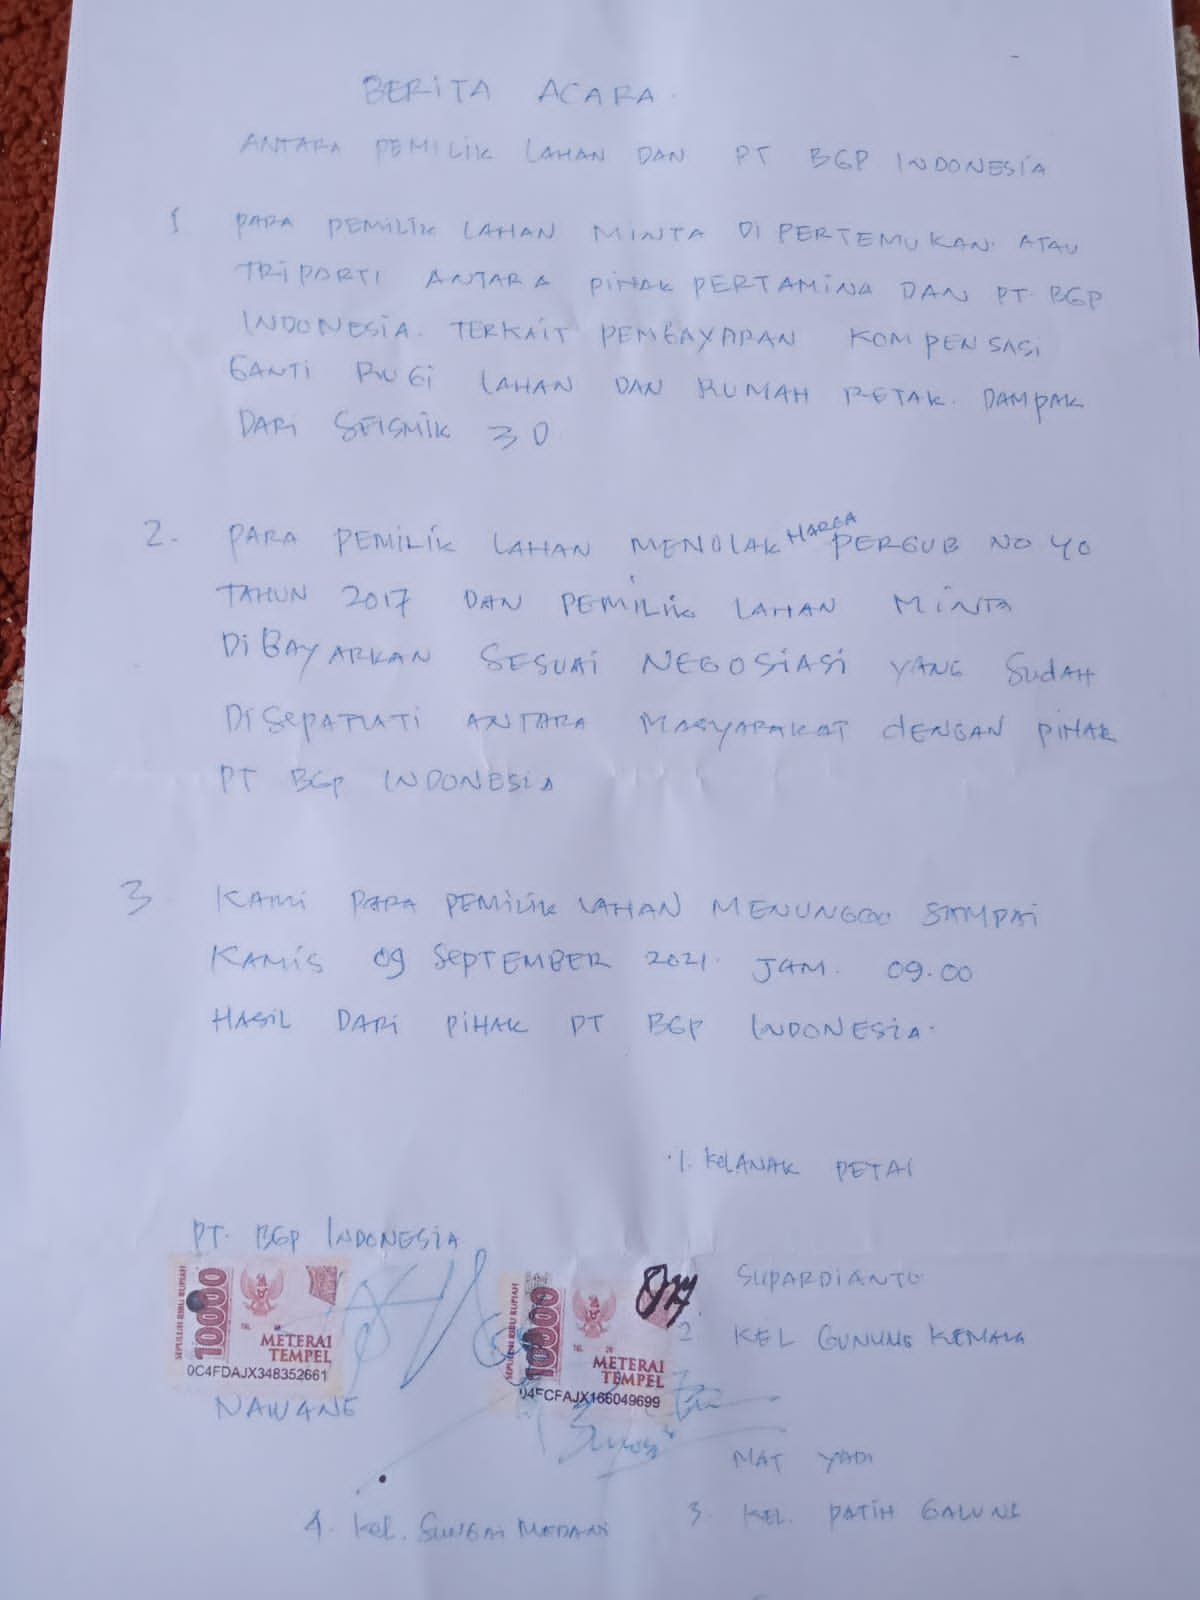 BERITA ACARA.
ANTARA PEMILIK LAHAN DAN PT BGP INDONESIA
1 PARA PEMILIK LAHAN MINTA DI PERTEMUKAN. ATAU
TRIPARTI ANTARA PIHAK PERTAMINA DAN PT. BGP
INDONESIA. TERKAIT PEMBAYARAN KOMPENSASI
GANTI RUGI LAHAN DAN RUMAH RETAK. DAMPAK
DARI SEISMIK 3D
2. PARA PEMILIK LAHAN MENOLAK HARGA PERGUB NO 40
TAHUN 2017 DAN PEMILIK LAHAN MINTA
DIBAYARKAN SESUAI NEGOSIASI YANG SUDAH
DISEPATUATI ANTARA MASYARAKAT DENGAN PIHAK
PT BGP INDONESIA
3 KAMI PARA PEMILIK LAHAN MENUNGGU SAMPAI
KAMIS 09 SEPTEMBER 2021. JAM. 09.00
HASIL DARI PIHAK PT BGP INDONESIA.
1. KEL ANAK PETAI
PT. BGP INDONESIA
SUPARDIANTO
SEPULUH RIBU RUPIAH
10000
TGL. 20
METERAI
TEMPEL
0C4FDAJX348352661
SEPULUH RIBU RUPIAH
10000
TGL. 20
METERAI
TEMPEL
04FCFAJX166049699
2 KEL GUNUNG KEMALA
NAWANG
MAT YADI
3. KEL. PATIH GALUNG
4. Kel. SUNGAI MEDANG